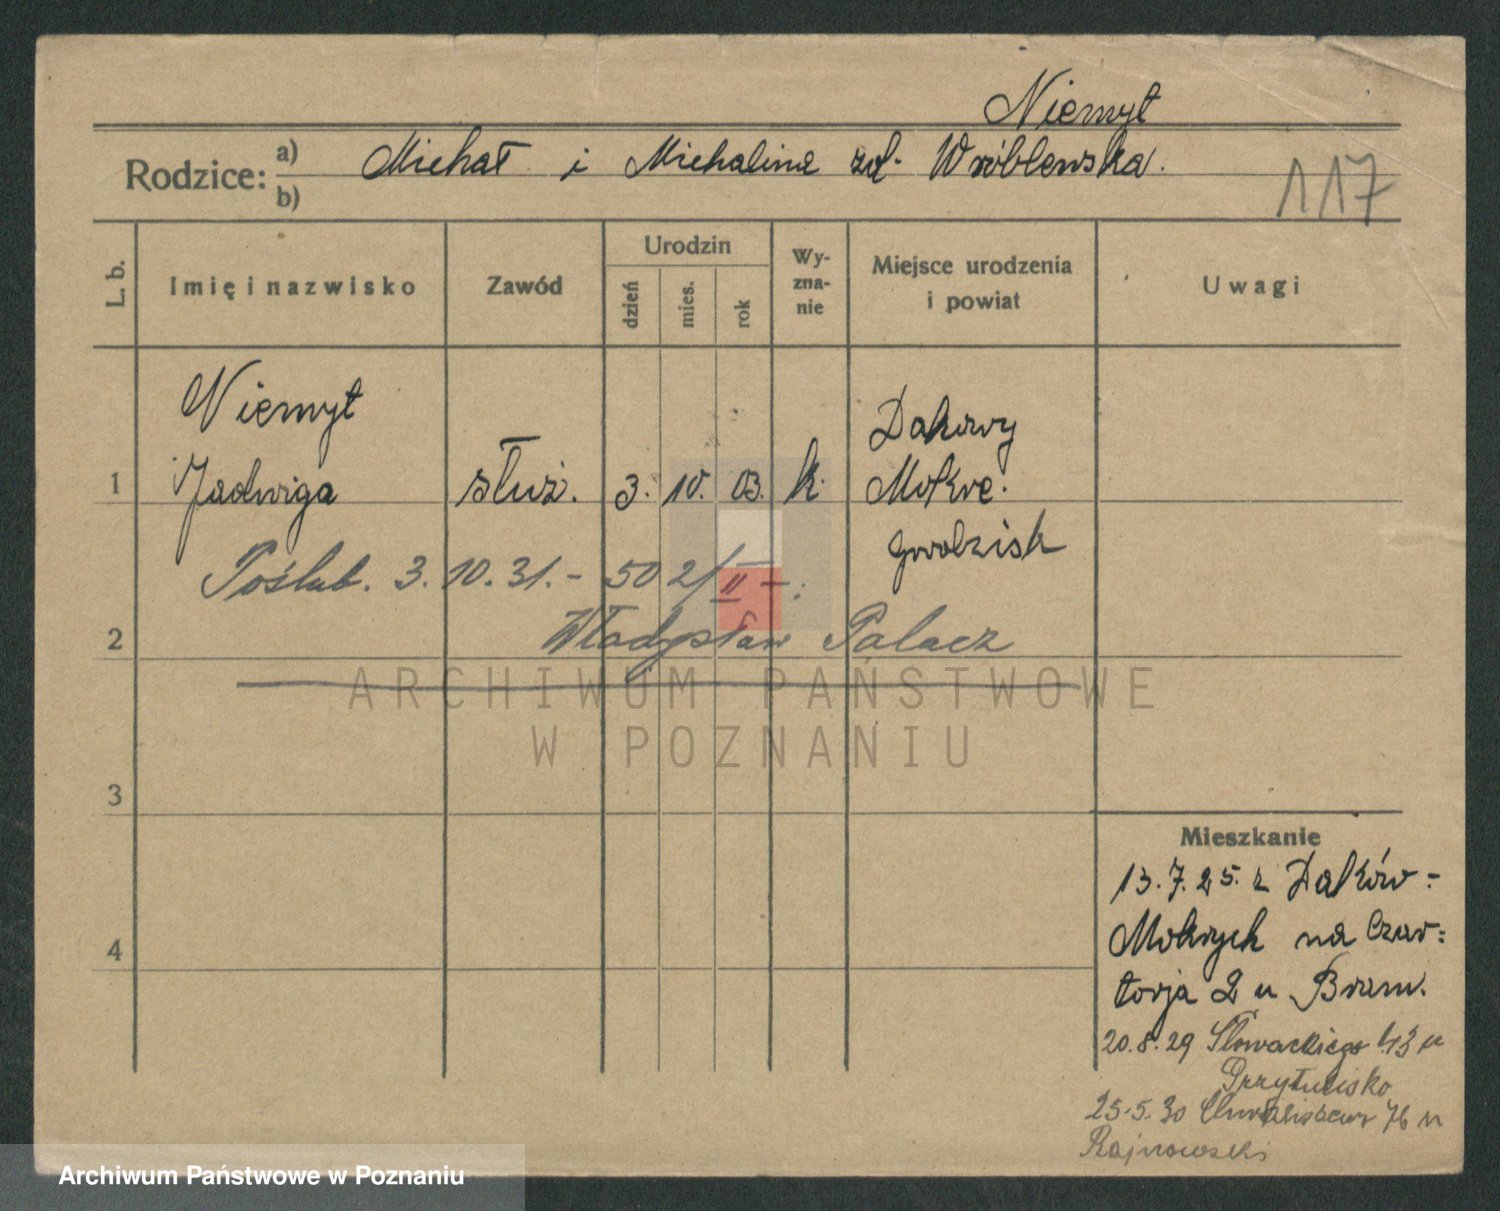 Niemyt
Rodzice: a) b) Michał i Michalina zd. Wróblewska.
117
L. b. Imię i nazwisko Zawód Urodzin dzień mies. rok Wy-zna-nie Miejsce urodzenia i powiat Uwagi
Niemyt Dakowy
1 Jadwiga służ. 3. 10. 03. k. Mokre.
Grodzisk
Poślub. 3. 10. 31. - 50 2/II - .
2 Władysław Palacz
ARCHIWUM PAŃSTWOWE
W POZNANIU
3
Mieszkanie
13. 7. 25. z Daków-
4 Mokrych na Czar=
torja 2 u Bram.
20. 8. 29 Słowackiego 43 u
Przytulisko
25. 5. 30 Chwaliszewo 76 u
Rajnowski
Archiwum Państwowe w Poznaniu